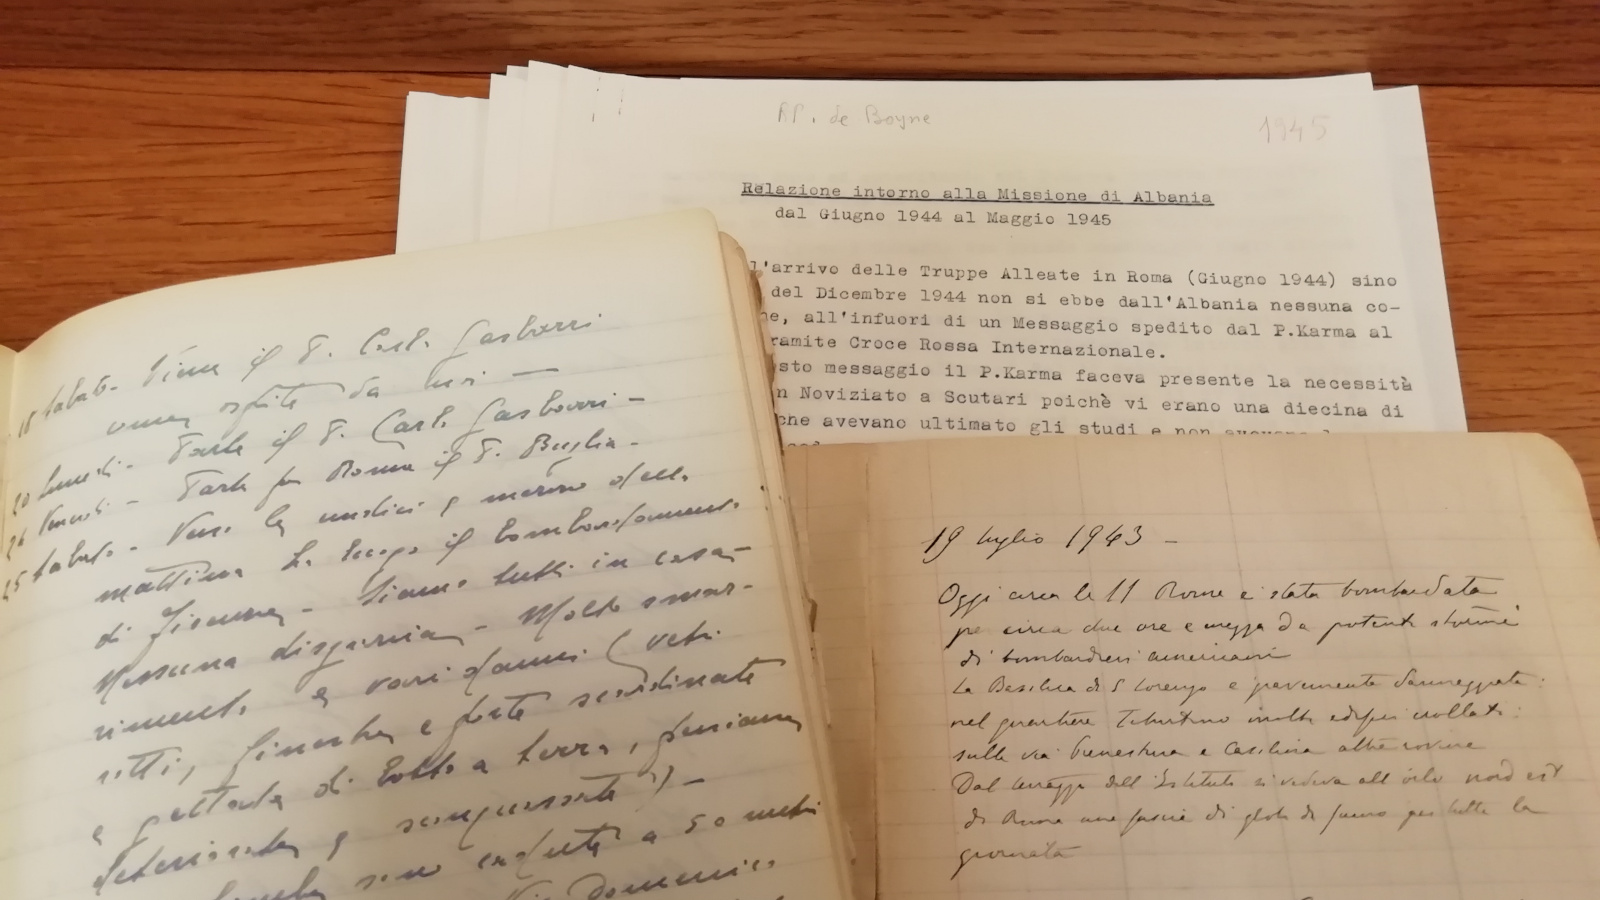 de Boyne
1945
Relazione intorno alla Missione di Albania
dal Giugno 1944 al Maggio 1945
l'arrivo delle Truppe Alleate in Roma (Giugno 1944) sino
del Dicembre 1944 non si ebbe dall'Albania nessuna co-
ne, all'infuori di un Messaggio spedito dal P.Karma al
ramite Croce Rossa Internazionale.
sto messaggio il P.Karma faceva presente la necessità
n Noviziato a Scutari poichè vi erano una diecina di
che avevano ultimato gli studi e non avevano
18 sabato - Viene il P. Carlo Gasbarri
ospite da noi -
20 lunedì - Parte il P. Carlo Gasbarri -
24 Venerdì - Parte per Roma il P. Buglia -
25 sabato - Verso le undici e mezzo della
mattina ha luogo il bombardamento
di - Siamo tutti in casa -
Nessuna disgrazia - Molto smar-
rimento e vari danni (vetri
rotti, finestre e porte scardinate
e gettate di botto a terra,
deteriorate e sconquassate) -
sono cadute a 50 metri
Via Domenico
19 luglio 1943 -
Oggi circa le 11 Roma è stata bombardata
per circa due ore e mezza da potenti stormi
di bombardieri americani
La Basilica di S Lorenzo è gravemente danneggiata:
nel quartiere Tiburtino molti edifici crollati:
sulla via Prenestina e Casilina altre rovine
Dal terrazzo dell'Istituto si vedeva all' nord est
di Roma una fascia di globi di fumo per tutta la
giornata